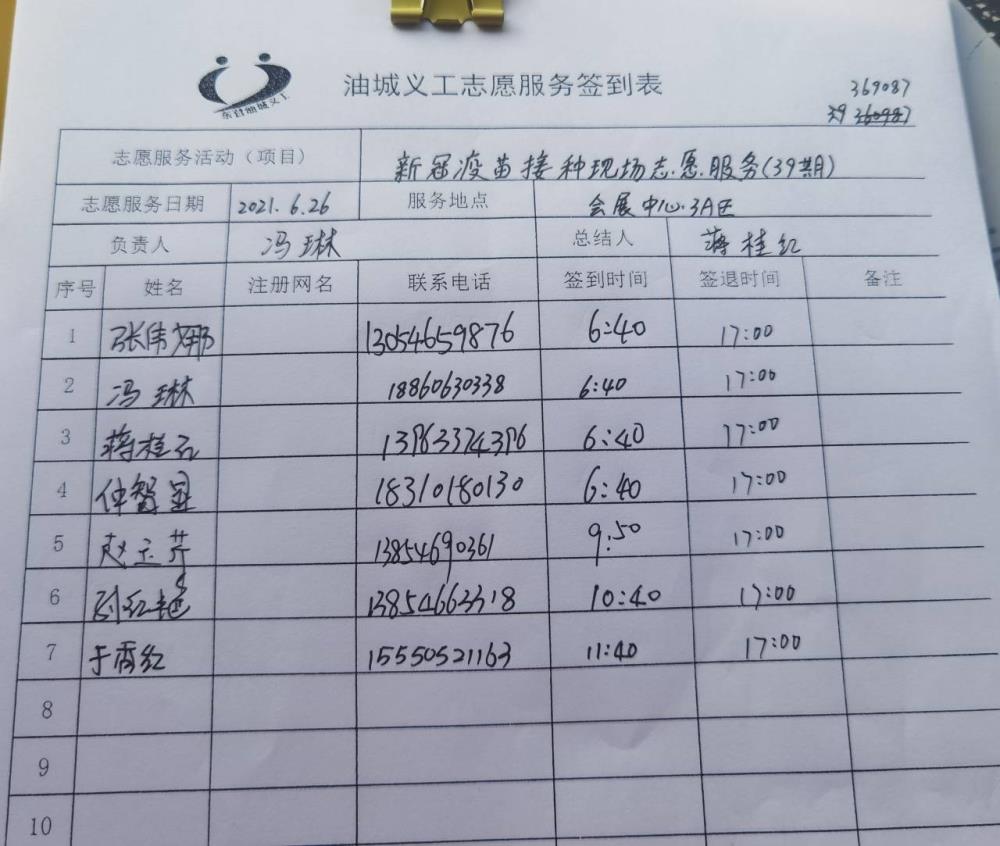 东营油城义工
油城义工志愿服务签到表
369087
39 360987
志愿服务活动（项目） 新冠疫苗接种现场志愿服务(39期)
志愿服务日期 2021.6.26 服务地点 会展中心.3A区
负责人 冯琳 总结人 蒋桂红
序号 姓名 注册网名 联系电话 签到时间 签退时间 备注
1 张伟娜 13054659876 6:40 17:00
2 冯琳 18860630338 6:40 17:00
3 蒋桂红 6:40 17:00
4 仲智显 18310180130 6:40 17:00
5 赵玉芹 13854690361 9:50 17:00
6 红艳 13854663318 10:40 17:00
7 于秀红 15550521163 11:40 17:00
8
9
10